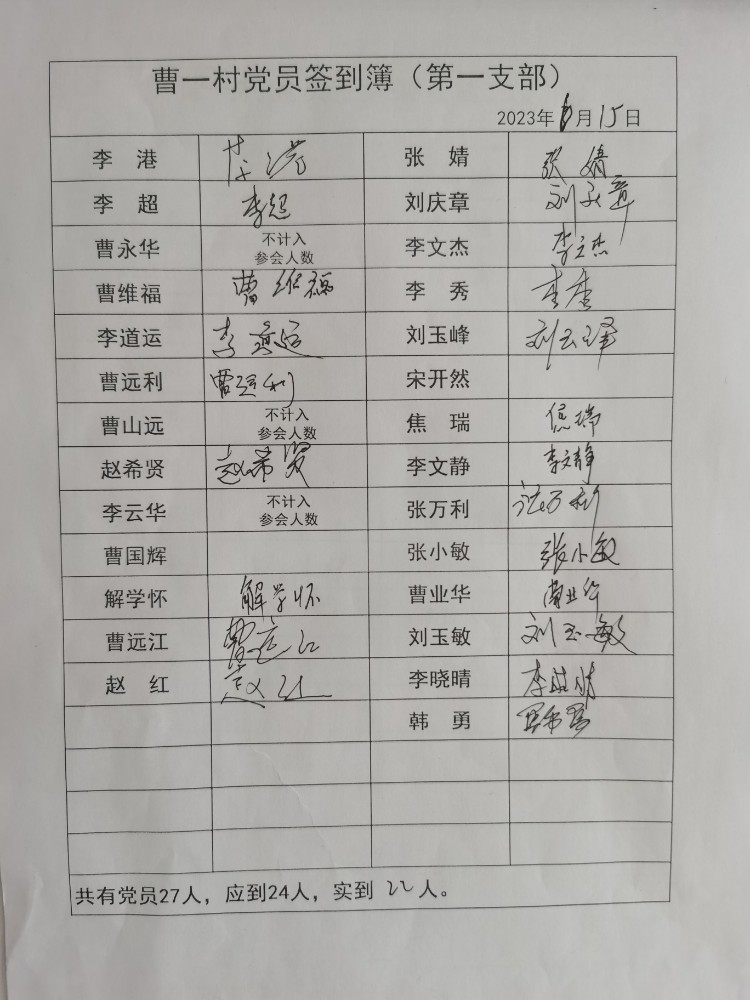 曹一村党员签到簿（第一支部）
2023年6月15日
李 港 李港 张 婧 张婧
李 超 李超 刘庆章 刘庆章
曹永华 不计入 李文杰 李文杰
参会人数
曹维福 曹维福 李 秀 李秀
李道运 李道运 刘玉峰 刘玉峰
曹远利 曹远利 宋开然
曹山远 不计入 焦 瑞 焦瑞
参会人数
赵希贤 赵希贤 李文静 李文静
李云华 不计入 张万利 张万利
参会人数
曹国辉 张小敏 张小敏
解学怀 解学怀 曹业华 曹业华
曹远江 曹远江 刘玉敏 刘玉敏
赵 红 赵红 李晓晴 李晓晴
韩 勇
共有党员27人，应到24人，实到 22人。